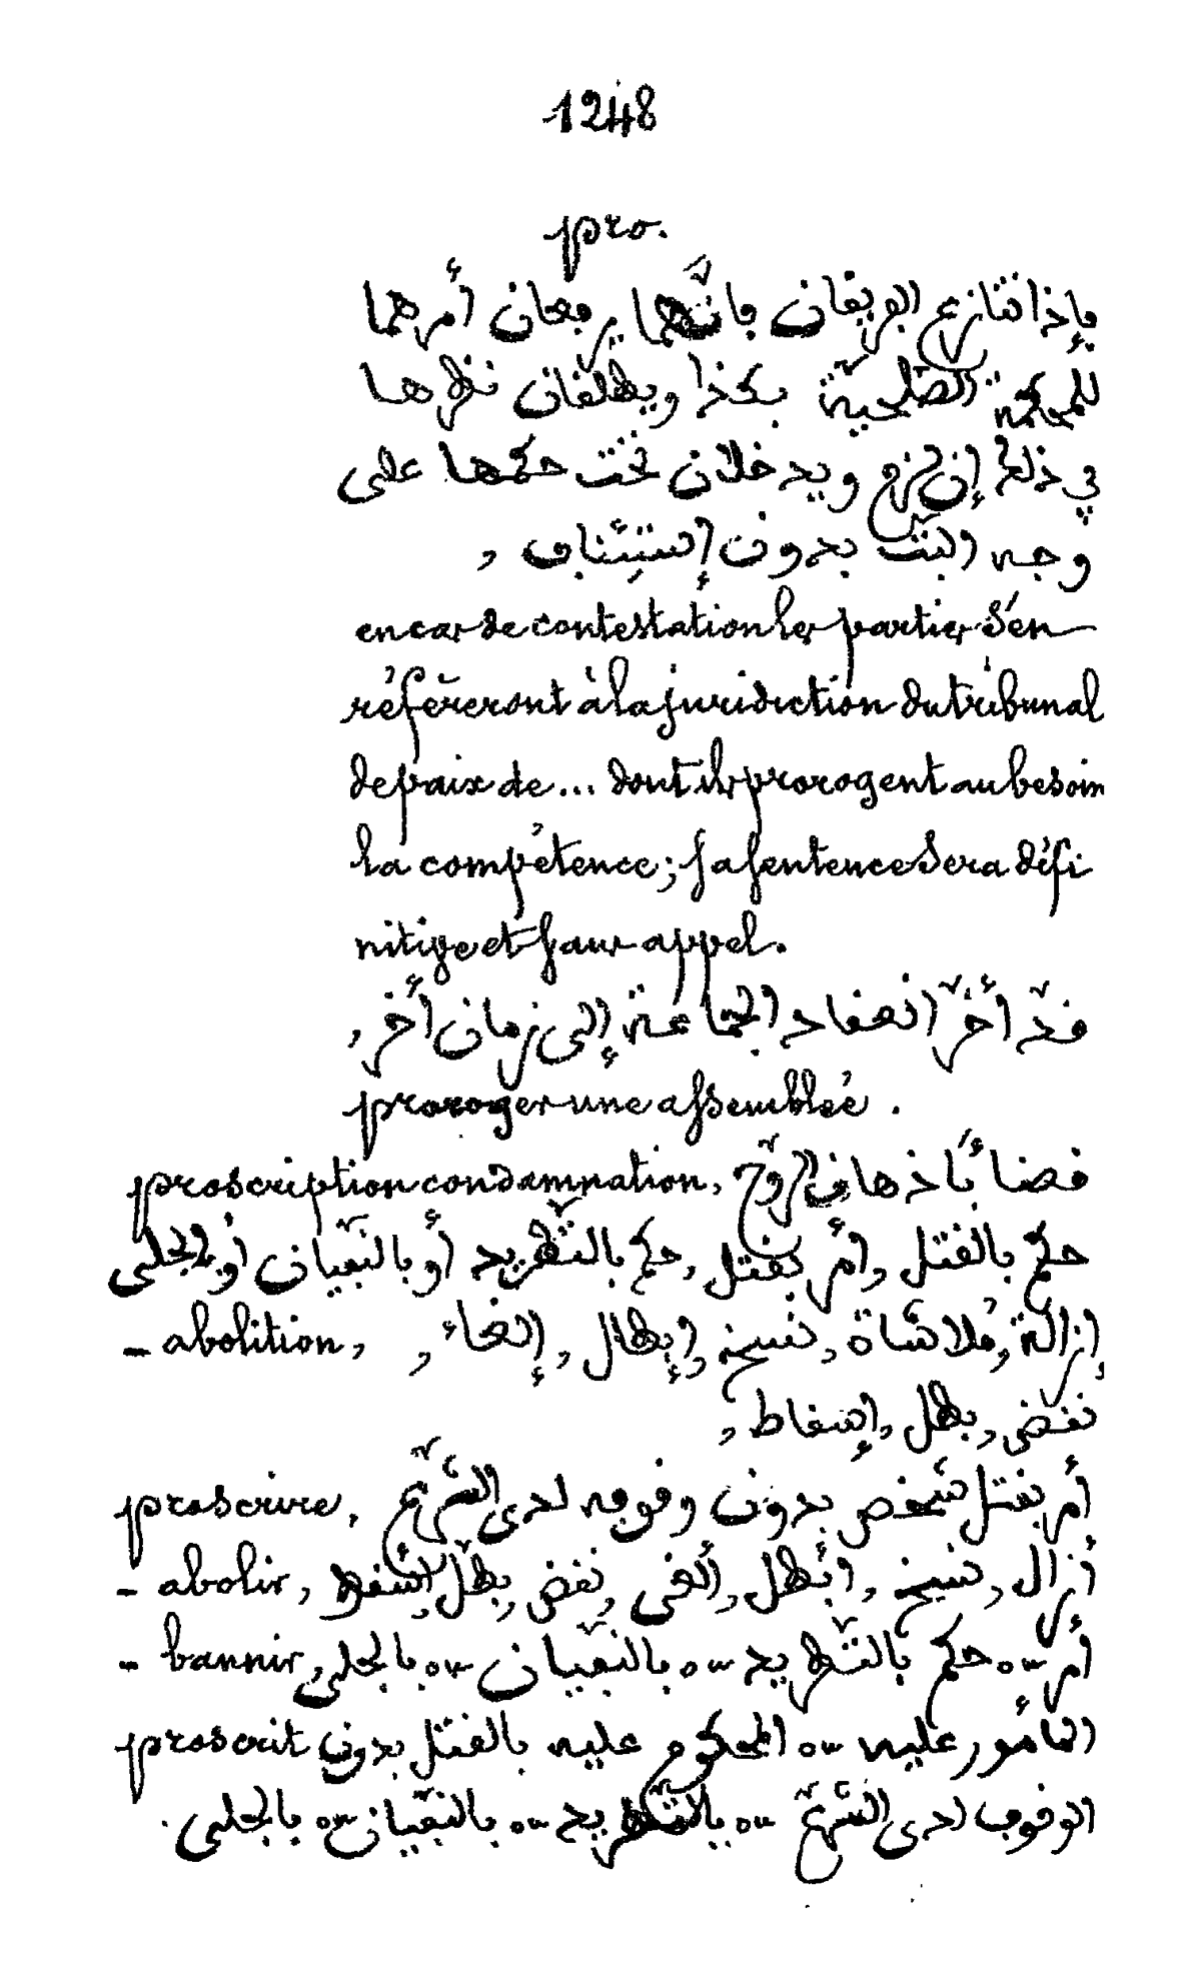 1248
pro.
فإذا تنازع الفريقان فإنّهما يرفعان أمرهما
للمحكمة الصّلحيّة بكذا ويطلقان نظرها
في ذلك إن لزم ويدخلان تحت حكمها على
وجه البتّ بدون إستئناف ,
en cas de contestation les parties s'en
référeront à la juridiction du tribunal
de paix de ... dont ils prorogent au besoin
la compétence ; sa sentence sera défi
nitive et sans appel.
قد أخّر انعقاد الجماعة إلى زمان أخر ,
proroger une assemblée .
proscription condamnation, قضاء بإذهاق الرّوح
حكم بالقتل , أمر بقتل , حكم بالتّطريد أو بالنّفيان أو بالجلى
- abolition, إزالة , ملاشاة , نسخ , إبطال , إلغاء ,
نقض , بطل , إسقاط ,
proscrire, أمر بقتل شخص بدون وقوفه لدى الشّرع
- abolir, أزال , نسخ , أبطل , ألغى , نقض , بطّل , أسقط
- bannir, أمر ـه حكم بالتّطريد ـه بالنّفيان ـه بالجلى
proscrit المأمور عليه ـه المحكوم عليه بالقتل بدون
الوقوف لدى الشّرع ـه بالتّطريد ـه بالنّفيان ـه بالجلى .